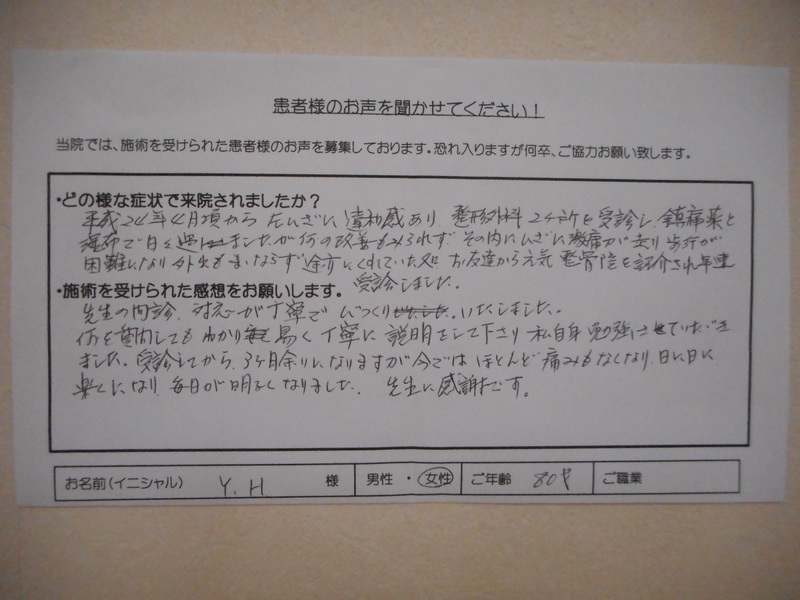 患者様のお声を聞かせてください！
当院では、施術を受けられた患者様のお声を募集しております。恐れ入りますが何卒、ご協力お願い致します。
・どの様な症状で来院されましたか？
平成24年4月頃から左ひざに違和感あり、整形外科2ヶ所を受診し、鎮痛薬と
湿布で日々過しましたが何の改善もみられず その内にひざに激痛が走り歩行が
困難になり外出もまゝならず途方にくれていた処 お友達から元気整骨院を紹介され
・施術を受けられた感想をお願いします。
受診しました。
先生の問診、対応が丁寧で びっくり いたしました。
何を質問しても わかり易く丁寧に説明をして下さり 私自身勉強させていただき
ました。受診してから、3ヶ月余りになりますが今では ほとんど痛みもなくなり、日に日に
楽になり 毎日が明るくなりました。 先生に感謝です。
お名前（イニシャル） Y. H 様 男性 ・ 女性 ご年齢 80才 ご職業